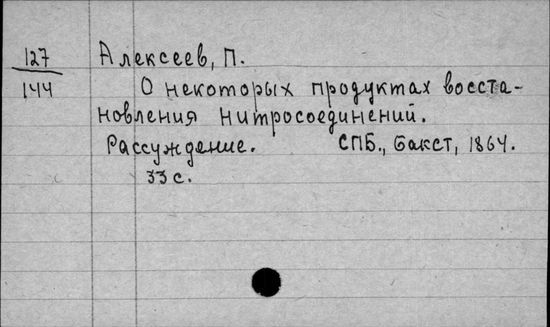 127 Алексеев, П.
144 О некоторых продуктах восста-
новления нитросоединений.
Рассуждение. СПБ., Бакст, 1864.
33 с.